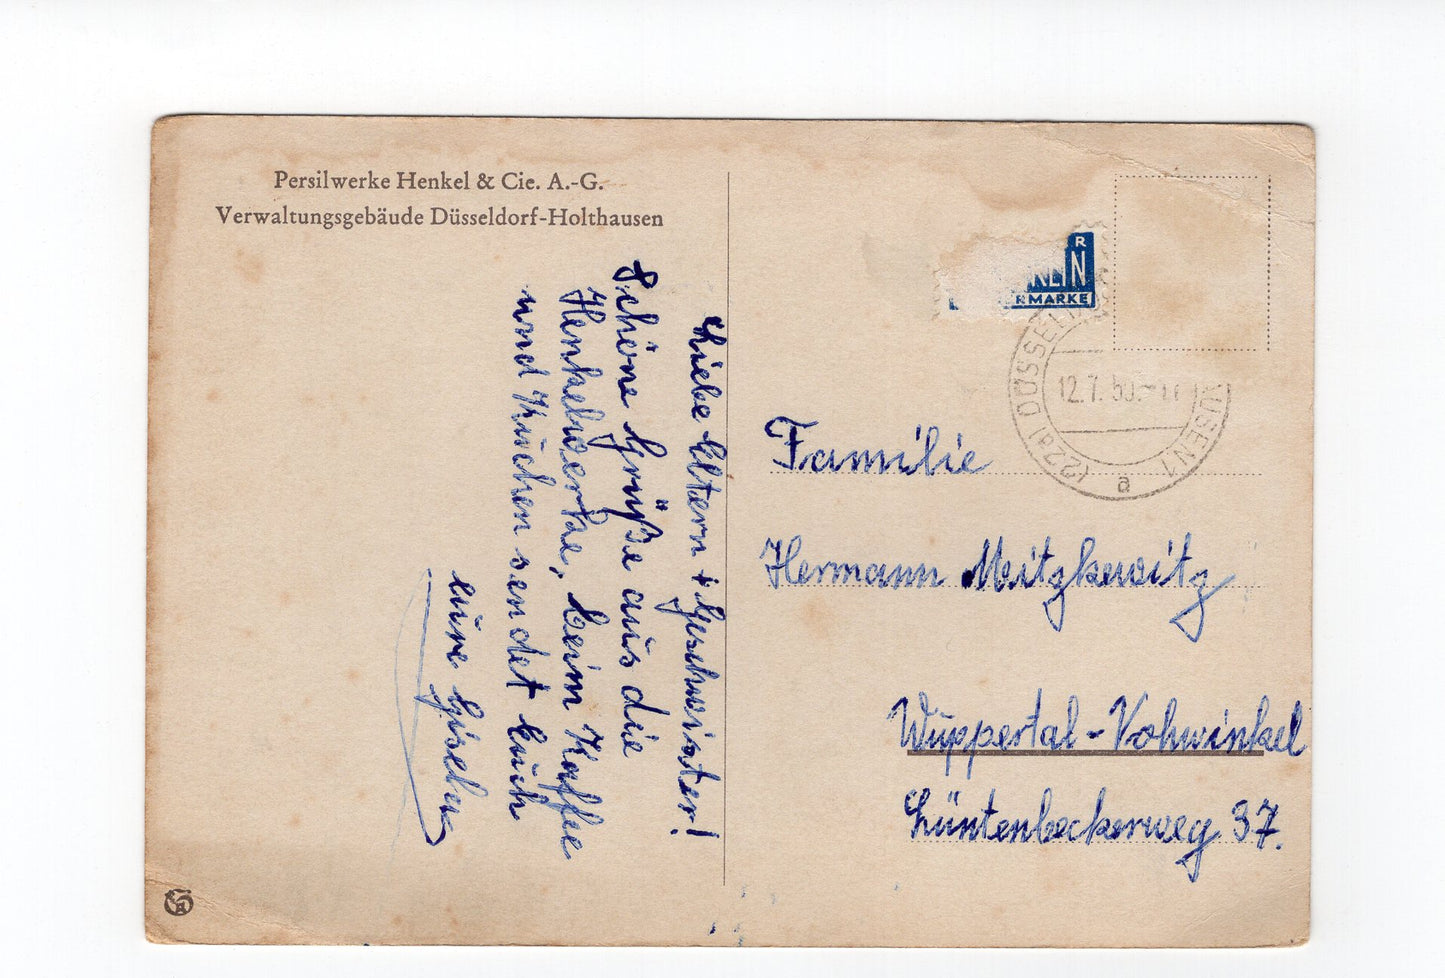 Persilwerke Henkel & Cie. A.-G.
Verwaltungsgebäude Düsseldorf-Holthausen
Liebe Eltern + Geschwister!
Schöne Grüße aus die
Henkelwerke, beim Kaffee
und Kuchen sendet Euch
eure Gisela
R
RLIN
RMARKE
(22a) DÜSSELD
USEN 1
12.7.50.-17
a
Familie
Hermann Mitzkewitz
Wuppertal-Vohwinkel
Lüntenbeckerweg 37.